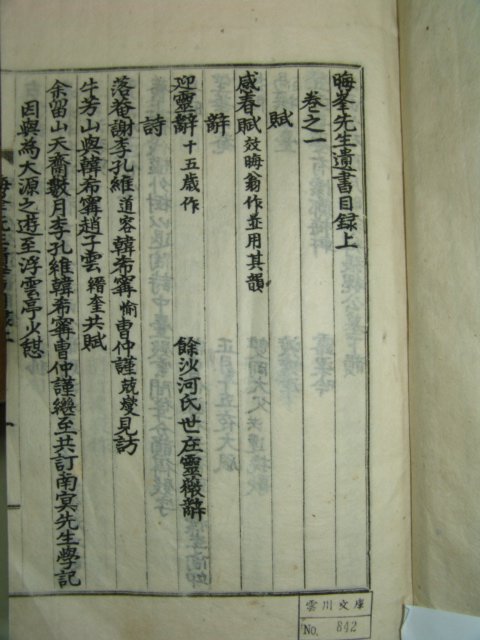 晦峯先生遺書目録上
卷之一
賦
感春賦效晦翁作並用其韻
辭
迎靈辭十五歲作
餘沙河氏世庄靈檄辭
詩
落菴謝李孔維道容韓希寗愉曺仲謹兢燮見訪
牛芳山與韓希寗趙子雲縉奎共賦
余留山天齋數月李孔維韓希寗曺仲謹繼至共訂南冥先生學記
因與為大源之遊至浮雲亭少憇
雲川文庫
No. 842